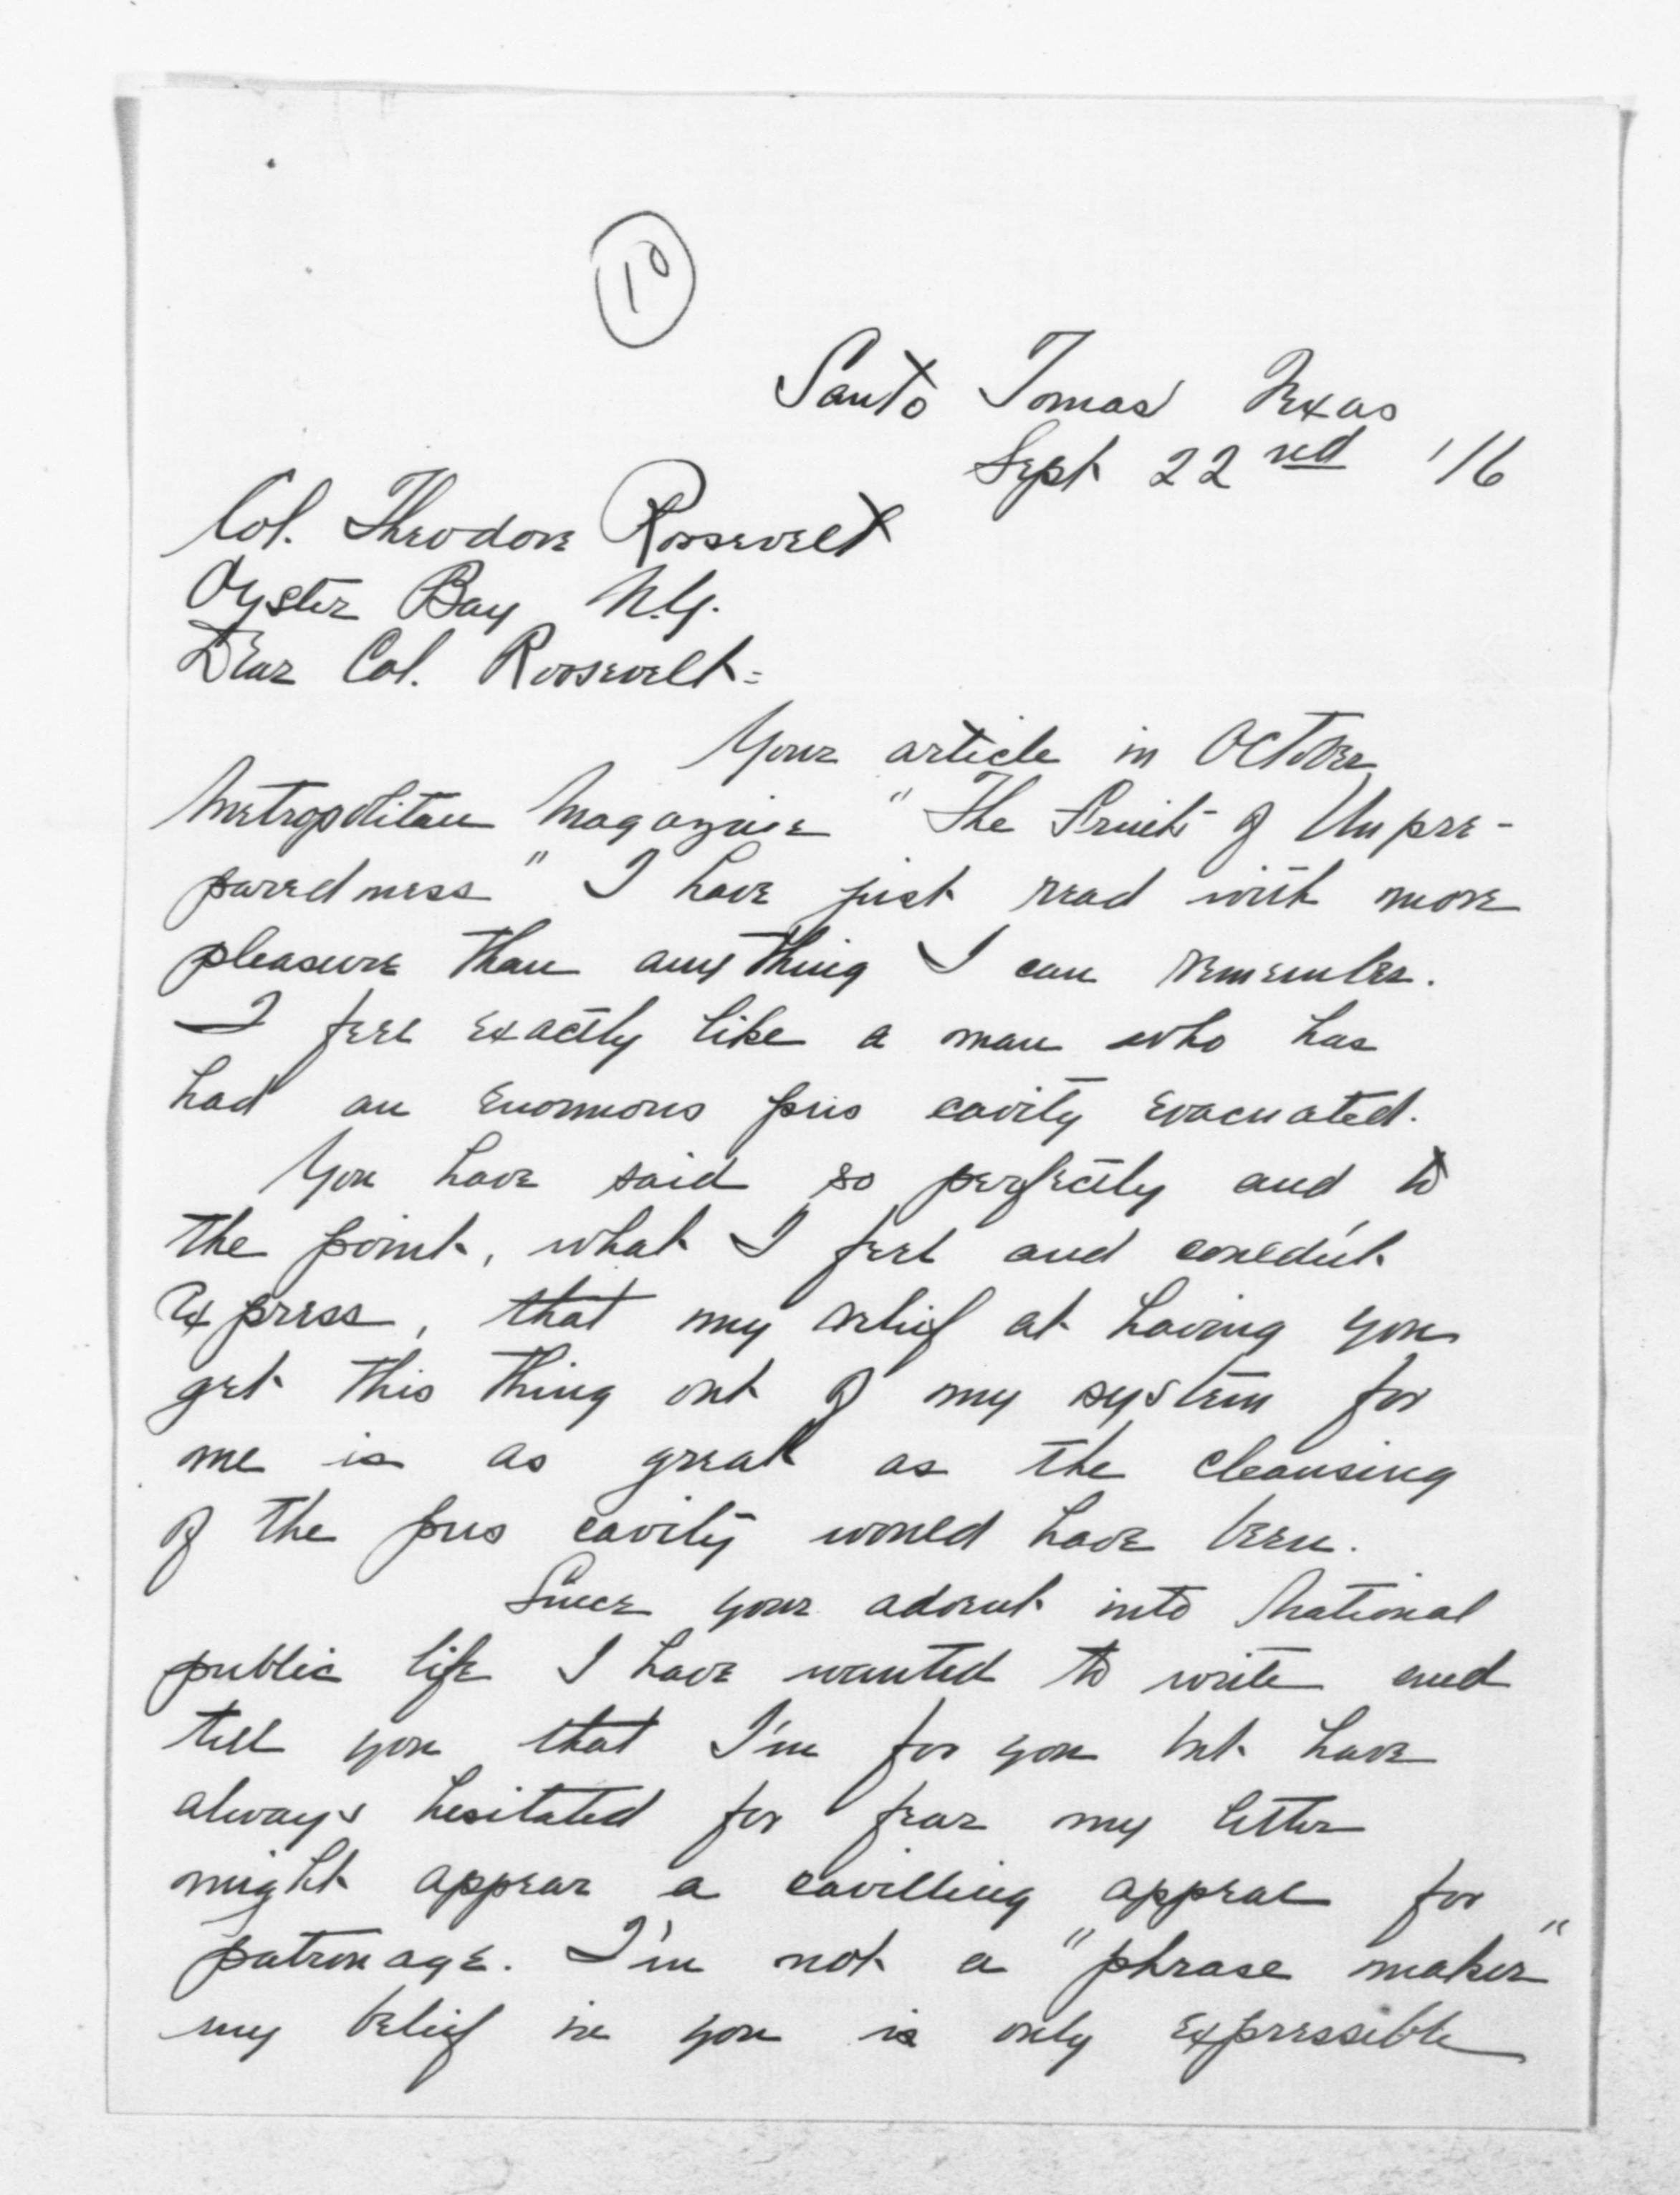 10
Santo Tomas Texas
Sept 22nd '16
Col. Theodore Roosevelt
Oyster Bay N.Y.
Dear Col. Roosevelt:
Your article in October
Metropolitan Magazine "The Fruits of Unpre-
paredness" I have just read with more
pleasure than anything I can remember.
I feel exactly like a man who has
had an enormous pus cavity evacuated.
You have said so perfectly and to
the point, what I feel and could'nt
express, that my relief at having you
get this thing out of my system for
me is as great as the cleansing
of the pus cavity would have been.
Since your advent into National
public life I have wanted to write and
tell you that I'm for you but have
always hesitated for fear my letter
might appear a cavilling appeal for
patronage. I'm not a "phrase maker"
my belief in you is only expressible